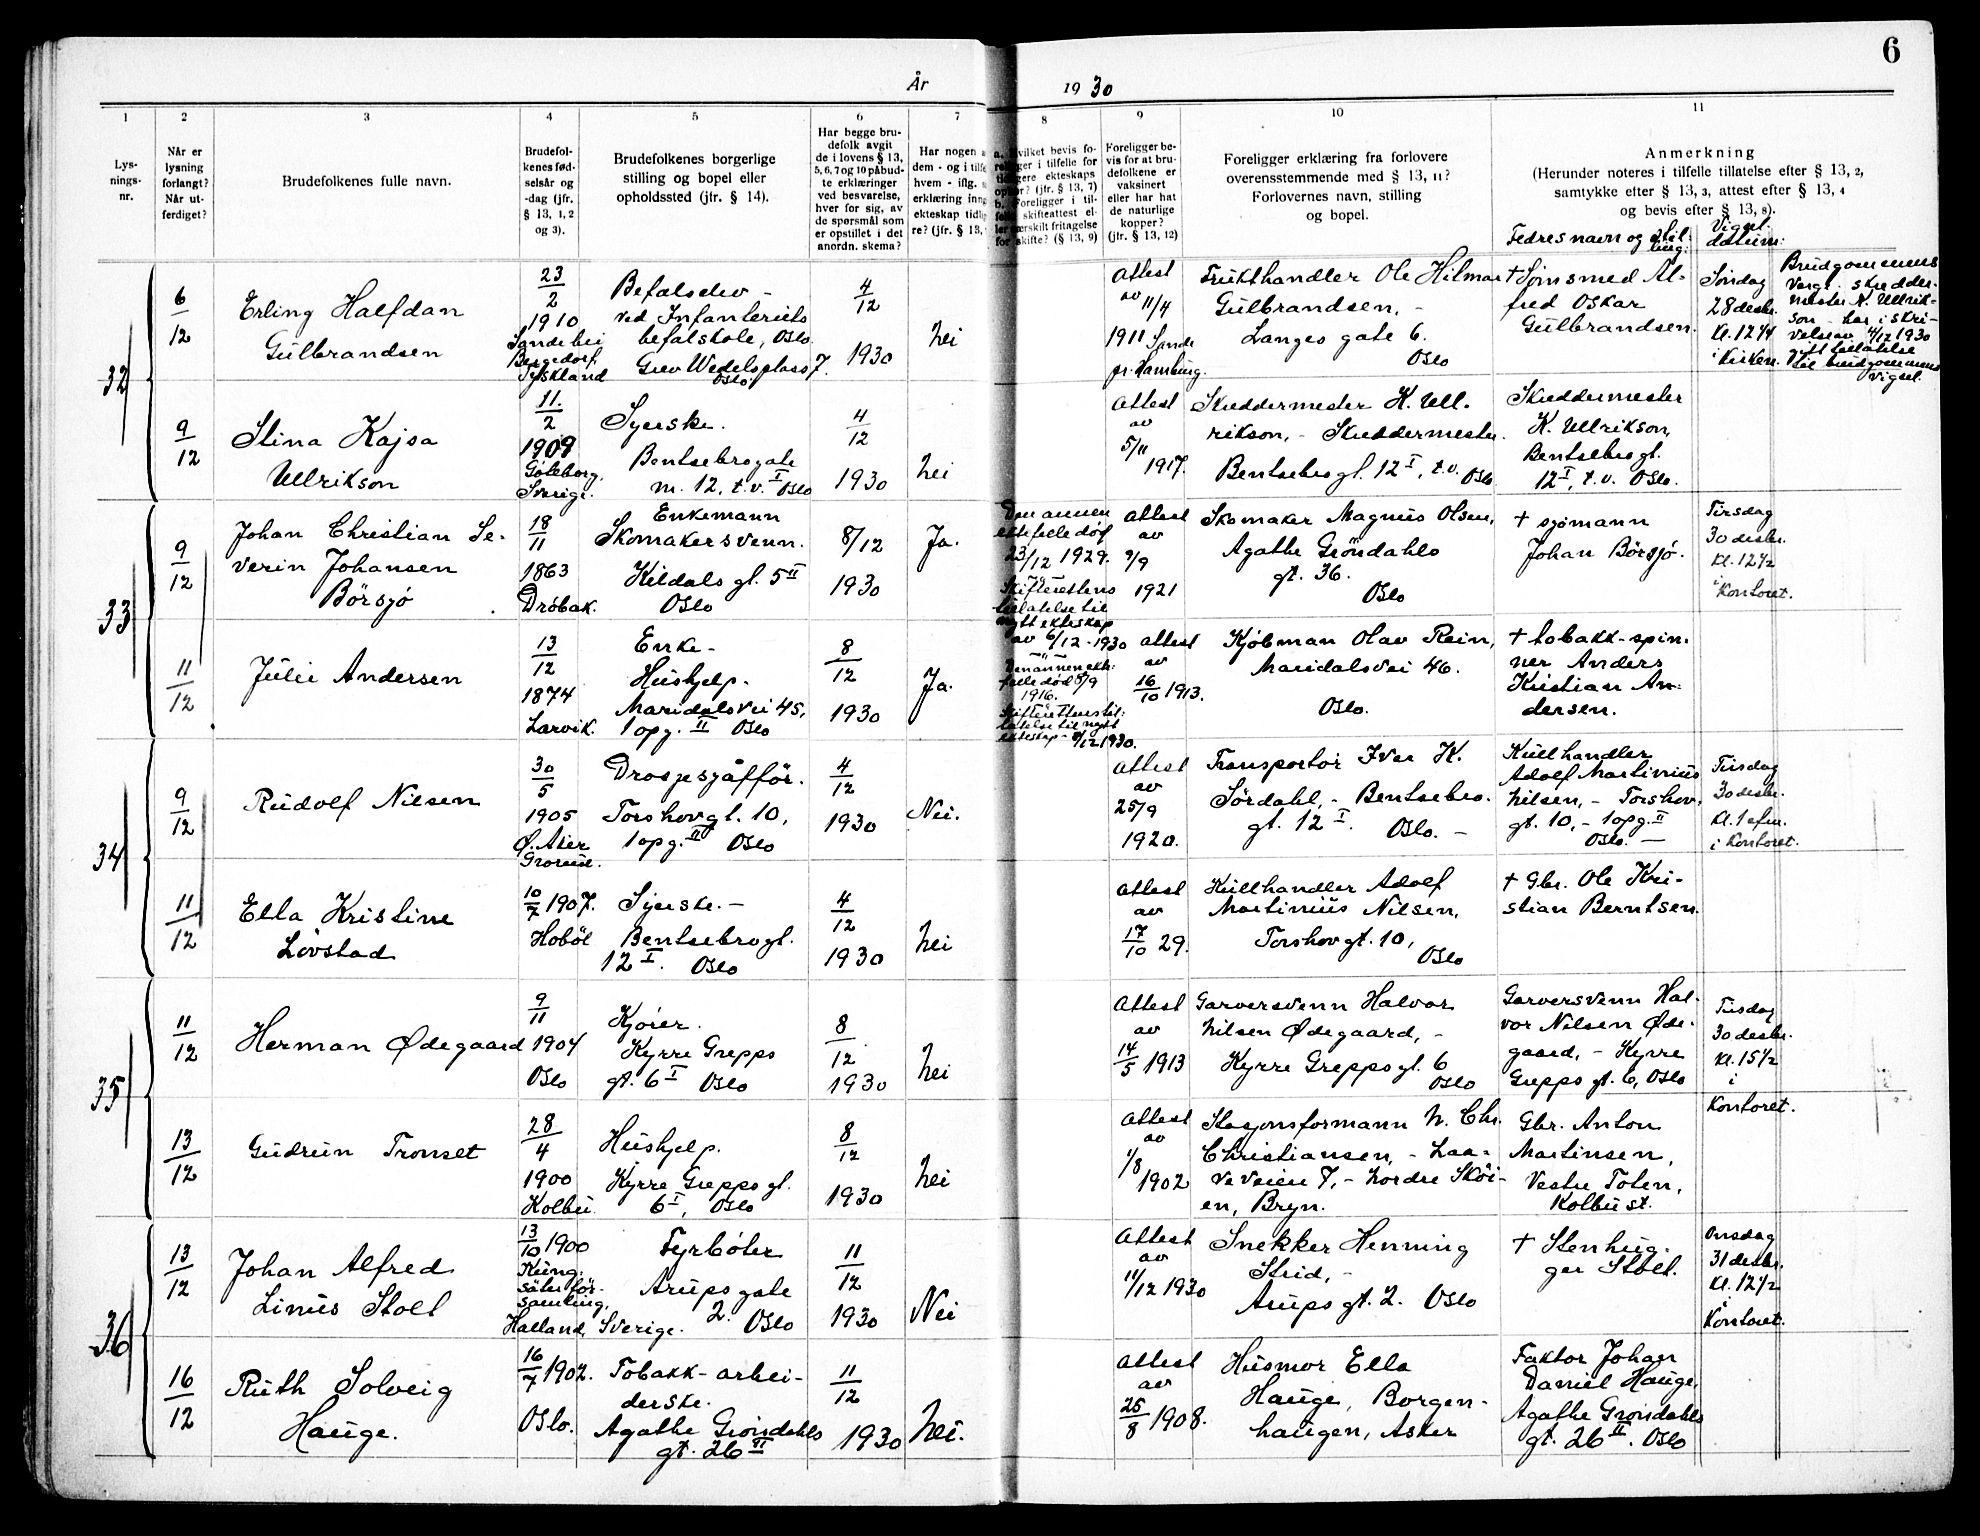 6
År 1930
1
Lys-
nings-
nr.
2
Når er
lysning
forlangt?
Når ut-
ferdiget?
3
Brudefolkenes fulle navn.
4
Brudefol-
kenes fød-
selsår og
-dag (jfr.
§ 13, 1, 2
og 3).
5
Brudefolkenes borgerlige
stilling og bopel eller
opholdssted (jfr. § 14).
6
Har begge bru-
defolk avgit
de i lovens § 13,
5, 6, 7 og 10 påbud-
te erklæringer
ved besvarelse,
hver for sig, av
de spørsmål som
er opstillet i det
anordn. skema?
7
Har nogen a
dem - og i tilfe
hvem - iflg.
erklæring inng
ekteskap tidlig
re? (jfr. § 13,
8
a. Hvilket bevis fo-
religger i tilfelle for
tidligere ekteskaps
ophør? (jfr. § 13, 7)
b. Foreligger i til-
felle skifteattest el-
ler særskilt fritagelse
for skifte? (§ 13, 9)
9
Foreligger be-
vis for at bru-
defolkene er
vaksinert
eller har hat
de naturlige
kopper?
(jfr. § 13, 12)
10
Foreligger erklæring fra forlovere
overensstemmende med § 13, 11?
Forlovernes navn, stilling
og bopel.
11
Anmerkning
(Herunder noteres i tilfelle tillatelse efter § 13, 2,
samtykke efter § 13, 3, attest efter § 13, 4
og bevis efter § 13, 8).
Fedres navn og stil-
ling:
Vigsl.
datum:
32
6/12
Erling Halfdan
Gulbrandsen
23/2
1910
Sande bei
Bergedorf,
Tyskland
Befalselev -
ved Infanteriets
befalskole, Oslo.
Grev Wedelsplass 7.
Oslo.
4/12
1930
Nei
Attest
av 11/4
1911 Sande
pr. Hamburg.
Frukthandler Ole Hilmar
Gulbrandsen, -
Langes gate 6.
Oslo
+ Sønsmed Al-
fred Oskar
Gulbrandsen.
Søndag
28 desbr.
kl. 12 1/4
i kirken.
Brudgommens
verge. skredder-
mester K. Ullrik-
son - har i skri-
velse av 4/12 1930
gitt tillatelse
til brudgommens
vigsel.
9/12
Stina Kajsa
Ullrikson
11./2
1909
Göteborg.
Sverige.
Syerske.
Bentsebrogate
nr. 12, t.v. I Oslo
4/12
1930
Nei
Attest
av
5/11
1917.
Skreddermester K. Ull-
rikson, - Skreddermester.
Bentsebrogt. 12 I, t.v. Oslo
Skreddermester
K. Ullrikson,
Bentsebrogt.
12 I, t.v. Oslo.
33
9/12
Johan Christian Se-
verin Johansen
Börsjö
18/11
1863
Drøbak.
Enkemann
Skomakersvenn.
Kildals gt. 5 II
Oslo
8/12
1930
Ja.
Den annen
ektefelle død
23/12 1929.
Skifterettens
tillatelse til
nytt ekteskap
av 6/12 - 1930
Attest
av
9/9
1921
Skomaker Magnus Olsen,
Agathe Gröndahls
gt. 36.
Oslo
+ sjömann
Johan Börsjö.
Tirsdag
30 desbr.
kl. 12 1/2
i
kontoret.
11/12
Julie Andersen
13/12
1874
Larvik.
Enke -
Hushjelp.
Maridalsvei 45,
1 opg. II Oslo
8/12
1930
Ja.
Den annen ekte-
felle død 5/9
1916.
Skifterettens til-
latelse til nytt
ekteskap - 8/12 1930.
Attest
av
16/10 1913.
Kjöbman Olav Rein,
Maridalsvei 46.
Oslo.
+ tobakk-spin-
ner Anders
Kristian An-
dersen.
34
9/12
Rudolf Nilsen
30/5
1905
Ø. Aker
Grorud.
Drosjesjåffør.
Torshovgt. 10,
1 opg. II Oslo
4/12
1930
Nei.
Attest
av
25/9
1920.
Transportør Iver K.
Sördahl, - Bentsebro.
gt. 12 I. Oslo. -
Kullhandler
Adolf Martinius
Nilsen, - Torshov,
gt. 10, - 1 opg. II
Oslo. -
Tirsdag
30 desbr.
kl. 1 efm.
i kontoret.
11/12
Ella Kristine
Lövstad
10/7 1907.
Hobøl
Syerske. -
Bentsebrogt.
12 I. Oslo
4/12
1930
Nei
Attest
av
17/10 29.
Kullhandler Adolf
Martinius Nilsen,
Torshovgt. 10,
Oslo
+ Gbr. Ole Kri-
stian Berntsen.
35
11/12
Herman Ødegaard
9/11
1904
Oslo
Kjører.
Kyrre Grepps
gt. 6 I Oslo
8/12
1930
Nei
Attest
av
14/5 1913
Garversvenn Halvor
Nilsen Ødegaard, -
Kyrre Grepps gt. 6
Oslo
Garversvenn Hal-
vor Nilsen Øde-
gaard, - Kyrre
Grepps gt. 6, Oslo
Tirsdag
30 desbr.
kl. 15 1/2
i
kontoret.
13/12
Gudrun Tronset
28/4
1900
Kolbu.
Hushjelp.
Kyrre Grepps gt.
6 I, Oslo
8/12
1930
Nei
Attest
av
1/8
1902
Stasjonsformann N. Chr.
Christiansen, - Haa-
veveien 7, - Nordre Skøi-
en, Bryn.
Gbr. Anton
Martinsen,
Vestre Toten,
Kolbu st.
36
13/12
Johan Alfred
Linus Stolt
13/10 1900
Kung-
säter för-
samling,
Halland, Sverige.
Fyrbøter
Arups gate
2. Oslo
11/12
1930
Nei
Attest
av
11/12 1930
Snekker Henning
Strid, -
Arups gt. 2. Oslo
+ Stenhug-
ger Stolt.
Onsdag
31 desbr.
kl. 12 1/2
i
kontoret.
16/12
Ruth Solveig
Hauge.
16/7 1902.
Oslo.
Tobakk-arbei-
derske.
Agathe Grøndahls
gt. 26 II
11/12
1930
Nei.
Attest
av
25/8 1908.
Husmor Ella
Hauge, Borgen-
haugen, Asker
Faktor Johan
Daniel Hauge,
Agathe Grøndahls
gt. 26 II. Oslo